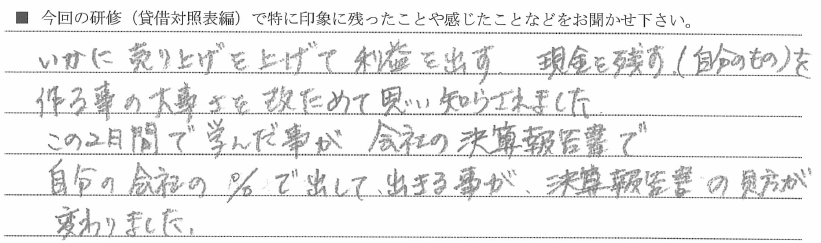 ■ 今回の研修（貸借対照表編）で特に印象に残ったことや感じたことなどをお聞かせ下さい。
いかに売り上げを上げて利益を出す、現金を残す(自分のもの)を
作る事の大事さを改ためて思い知らされました
この2日間で学んだ事が会社の決算報告書で
自分の会社の%で出して、出きる事が、決算報告書の見方が
変わりました。